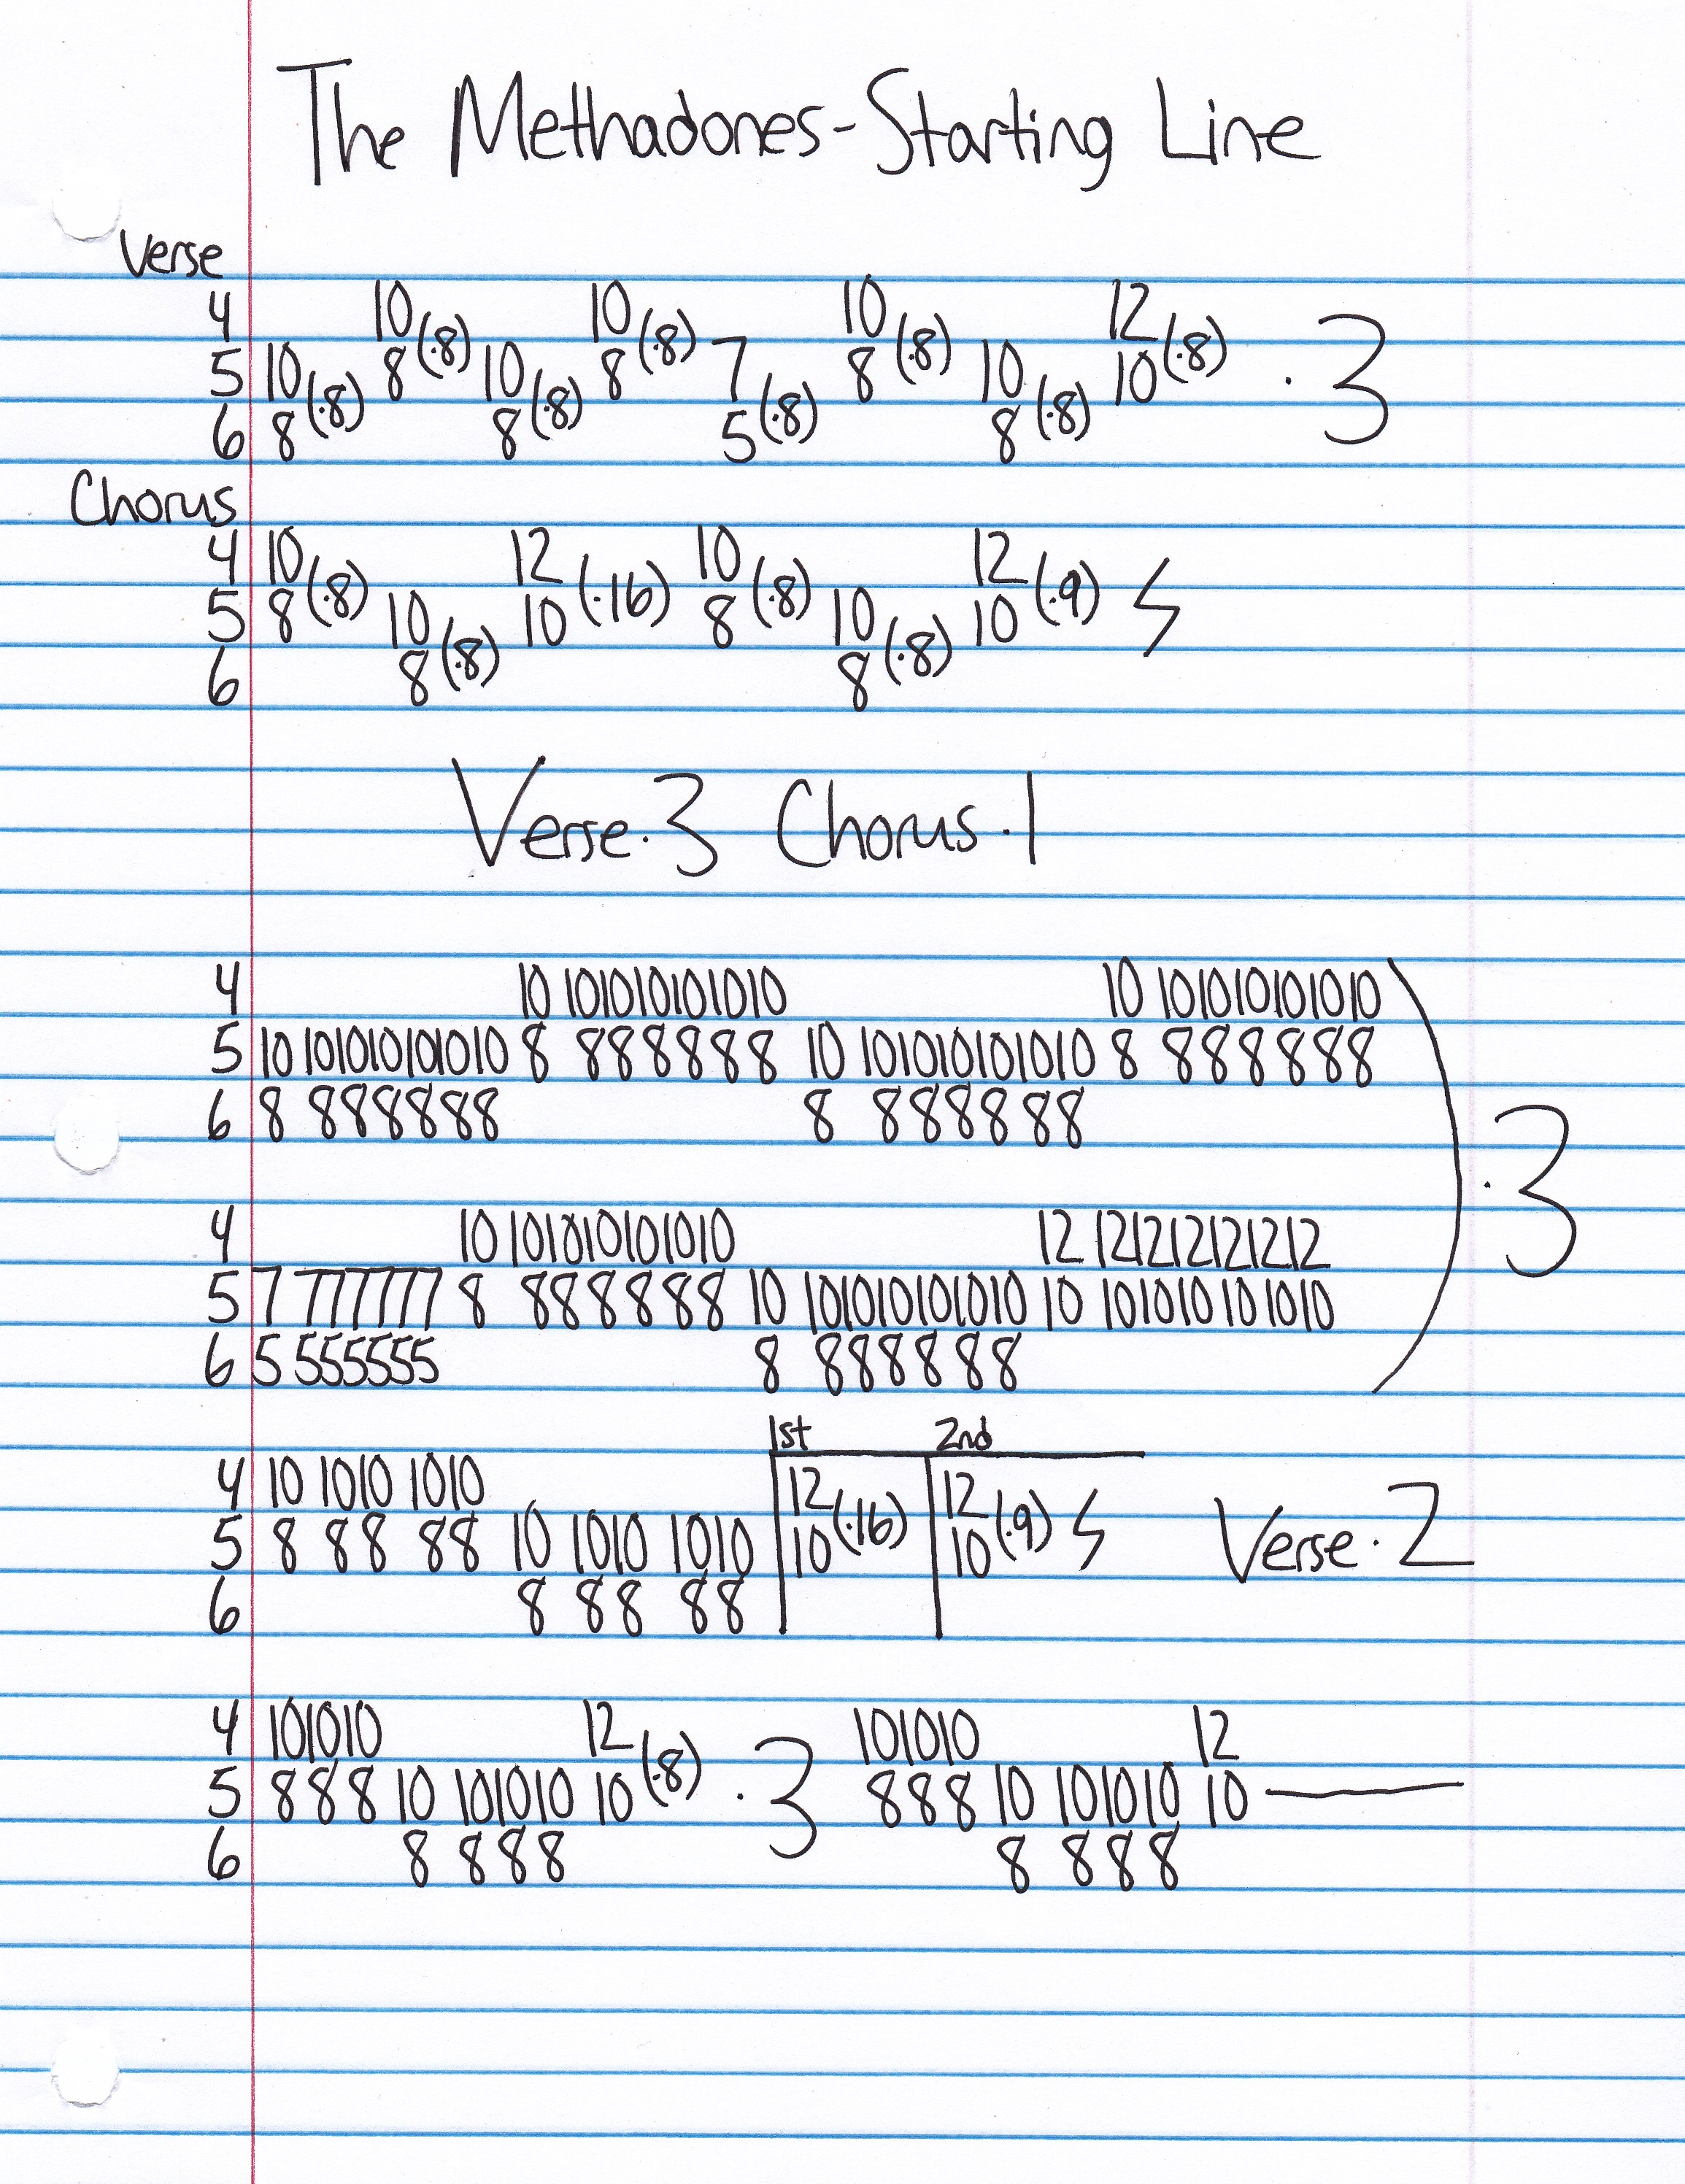 The Methadones-Starting Line
Verse
4 10(·8) 10(·8) 10(·8) 12(·8)
5 10(·8) 8 10(·8) 8 7 8 10 10 ·3
6 8 8 5(·8) 8(·8)
Chorus
4 10(·8) 12(·16) 10(·8) 12(·9)
5 8 10 10 8 10 10 ϟ
6 8(·8) 8(·8)
Verse·3 Chorus·1
4 10 101010101010 10 101010101010
5 10 101010101010 8 888888 10 101010101010 8 888888
6 8 888888 8 888888
) ·3
4 10 101010101010 12 121212121212
5 7 777777 8 888888 10 101010101010 10 101010101010
6 5 555555 8 888888
1st 2nd
4 10 1010 1010 12(·16) 12(·9)
5 8 88 88 10 1010 1010 10 10 ϟ Verse·2
6 8 88 88
4 101010 12(·8) 101010 12
5 888 10 101010 10 ·3 888 10 101010 10 —
6 8 888 8 888